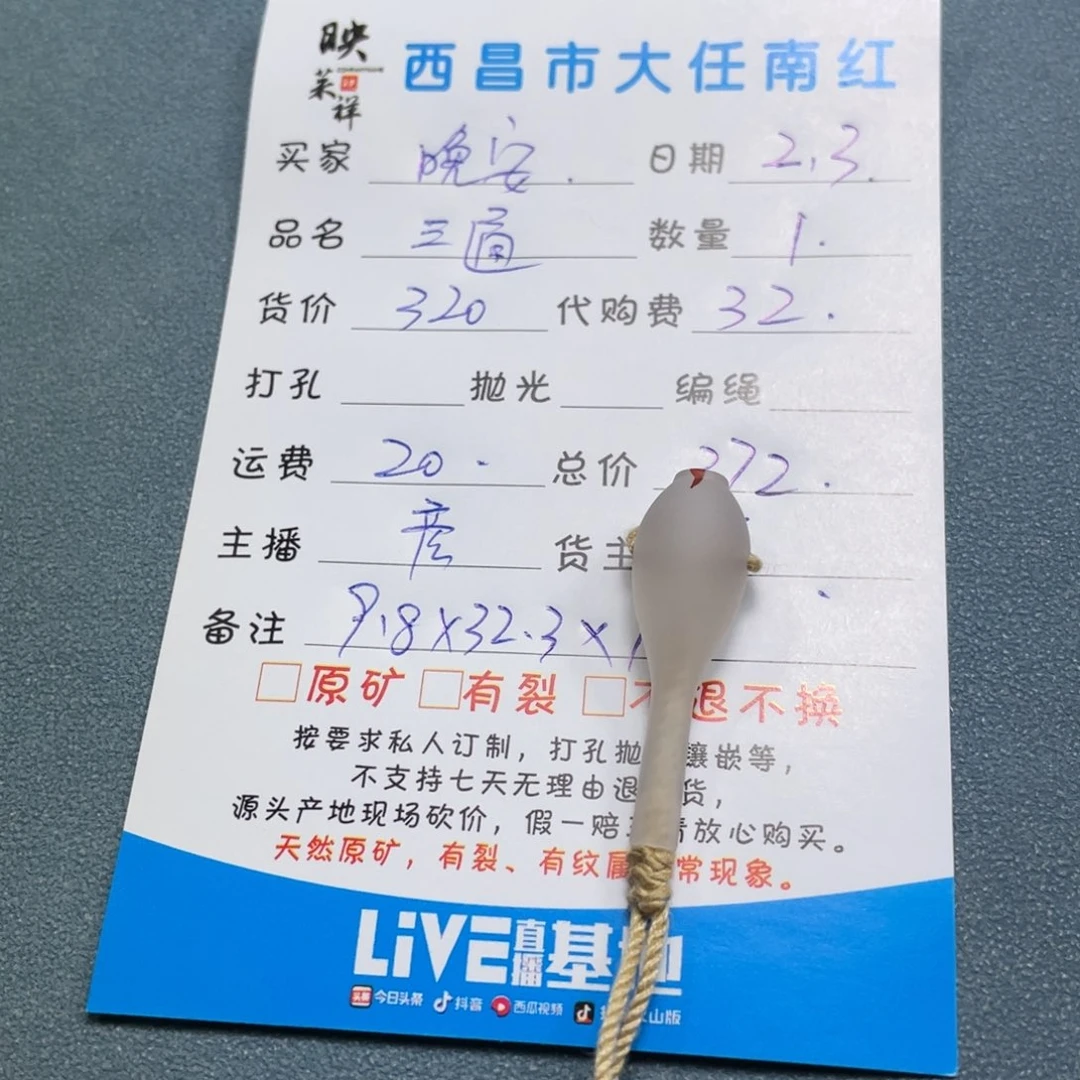 映
莱祥
西昌市大任南红
买家 晚安. 日期 2.3.
品名 三通 数量 1.
货价 320 代购费 32.
打孔 抛光 编绳
运费 20. 总价 372.
主播 彦 货主
备注 9.8×32.3×1
□原矿 □有裂 □不退不换
按要求私人订制，打孔抛 镶嵌等，
不支持七天无理由退 货，
源头产地现场砍价，假一赔 请放心购买。
天然原矿，有裂、有纹属 常现象。
LiVE直播基地
头条 今日头条 抖音 西瓜视频 火山版